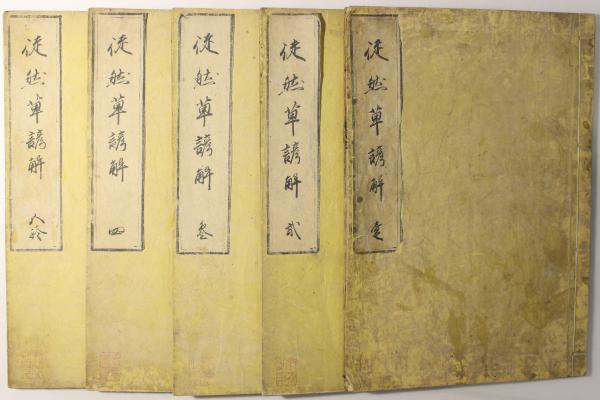 徒然草諺解
徒然草諺解 弐
徒然草諺解 叄
徒然草諺解 四
徒然草諺解